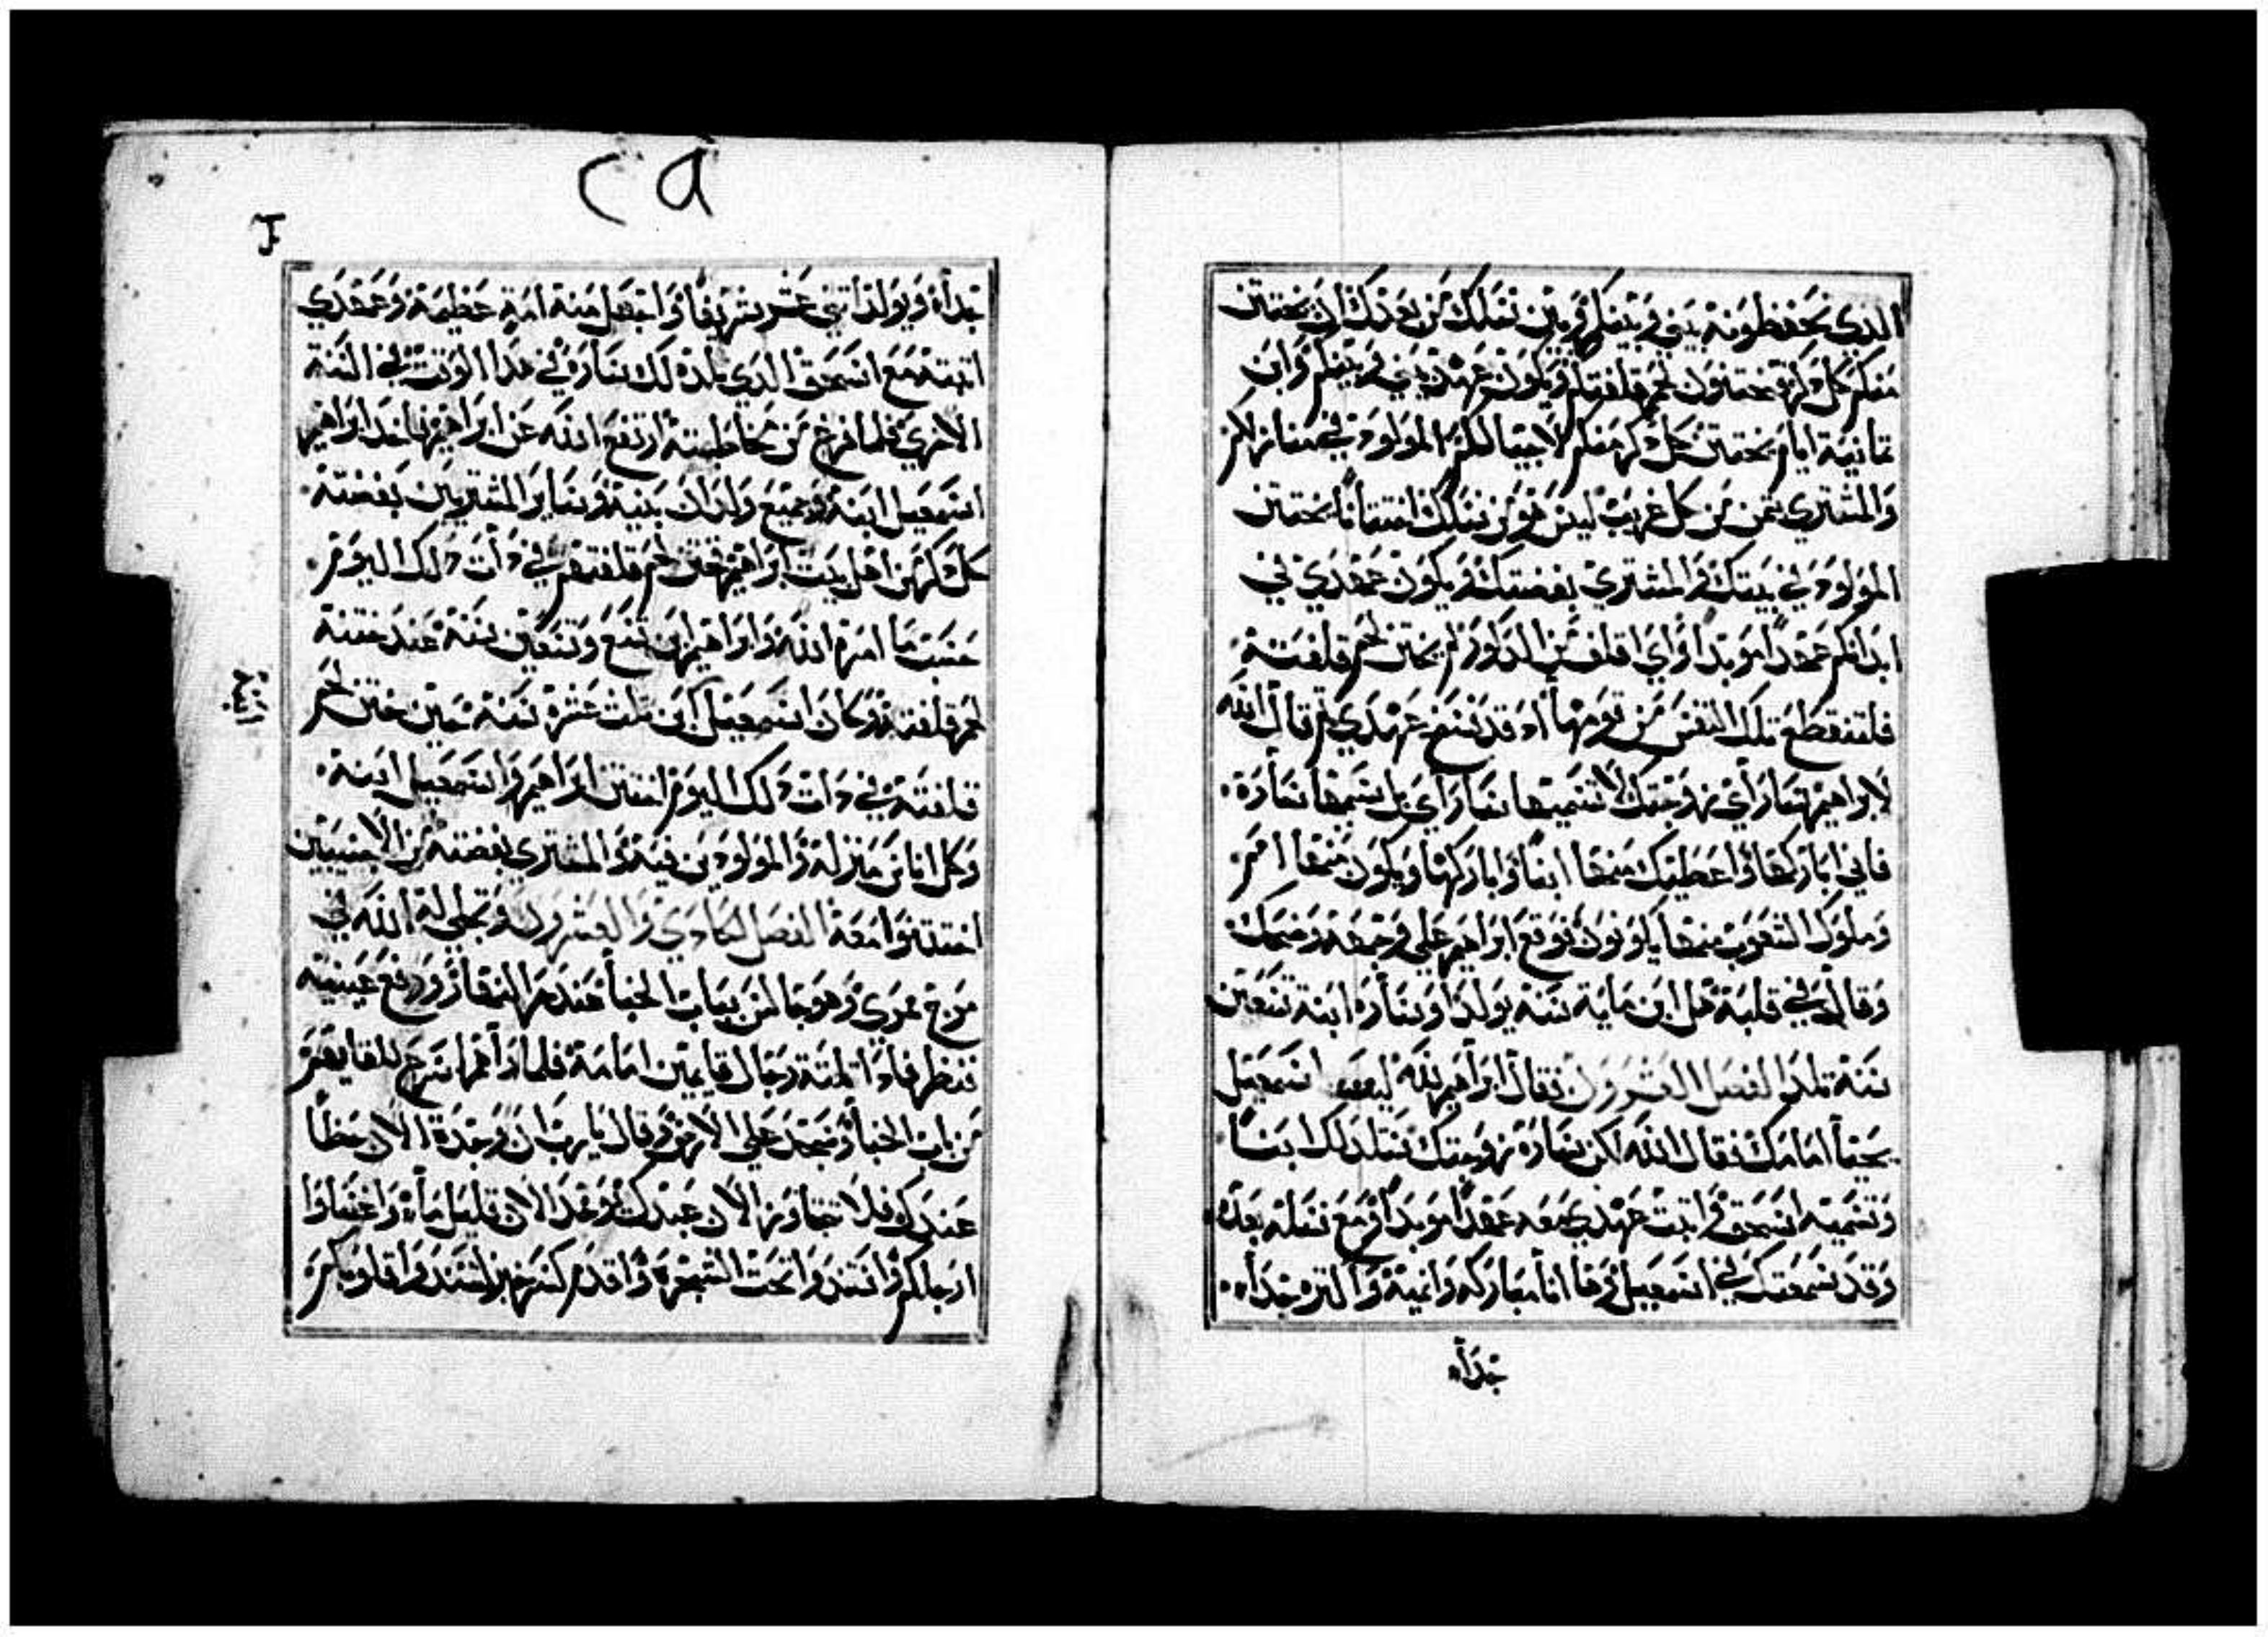 الدي تحفظونه بيني وبينكم وبين نسلك من بعدك ان يختتن
منكم كل دكر فتختنون لحم قلفتكم ويكون عهدي بيني وبينكم وابن
تمانية ايام يختتن كل دكر منكم لاجيالكم المولود في منازلكم
والمشتري بتمن من كل غريب ليس هو من نسلك اختتانا يختتن
المولود في بيتك والمشتري بفضتك ويكون عهدي في
ابدانكم عهدا موبدا واي اقلف من الدكور لم يختن لحم قلفته
فلتنقطع تلك النفس من قومها اد قد فسخ عهدي تم قال الله
لابراهيم ساراي زوجتك لا تسميها ساراي بل سميها سارة
فاني اباركها واعطيك منها ابنا واباركها ويكون منها امم
وملوك الشعوب منها يكونون فوقع ابراهيم علي وجهه وضحك
وقال في قلبه هل ابن ماية سنه يولد او سارة ابنة تسعين
سنة تلد الفصل العشرون فقال ابراهيم لله ليت اسمعيل
يحيا امامك فقال الله لكن سارة زوجتك ستلد لك ابنا
وتسميه اسحق واتبت عهدي معه عهدا موبدا ومع نسله بعده
وقد سمعتك في اسمعيل وها انا مباركه وانميه واكتره جدا
جدا
٢٩
جدا ويولد اتني عشر شريفا واجعل منه امة عظيمة وعهدي
اتبته مع اسحق الدي تلده لك سارة في هدا الوقت في السنة
الاخري فلما فرغ من مخاطبته ارتفع الله عن ابراهيم فاخد ابراهيم
اسمعيل ابنه وجميع ولدان بيته وساير المشتريين بفضته
كل دكر من اهل بيت ابراهيم فختن لحم قلفتهم في دات دلك اليوم
حسب ما امره الله وابراهيم ابن تسع وتسعين سنة عند ختنه
لحم قلفته وكان اسمعيل ابن تلت عشرة سنة حين ختن لحم
قلفته في دات دلك اليوم اختتن ابراهيم واسمعيل ابنه
وكل اناس منزله والمولودين فيه والمشتري بفضته من الاجنبيين
اختتنوا معه الفصل الحادي والعشرون وتجلي له الله في
مرج ممري وهو جالس بباب الخبا عند حر النهار ورفع عينيه
فنظر فادا تلتة رجال قايمين امامه فلما راهم اسرع للقايهم
من باب الخبا وسجد علي الارض وقال يارب ان وجدة الان حظا
عندك فلا تجاوز الان عبدك وخد الان قليل ماء واغسلوا
ارجلكم واستندوا تحت الشجرة واقدم كسر خبز لتسندوا قلوبكم